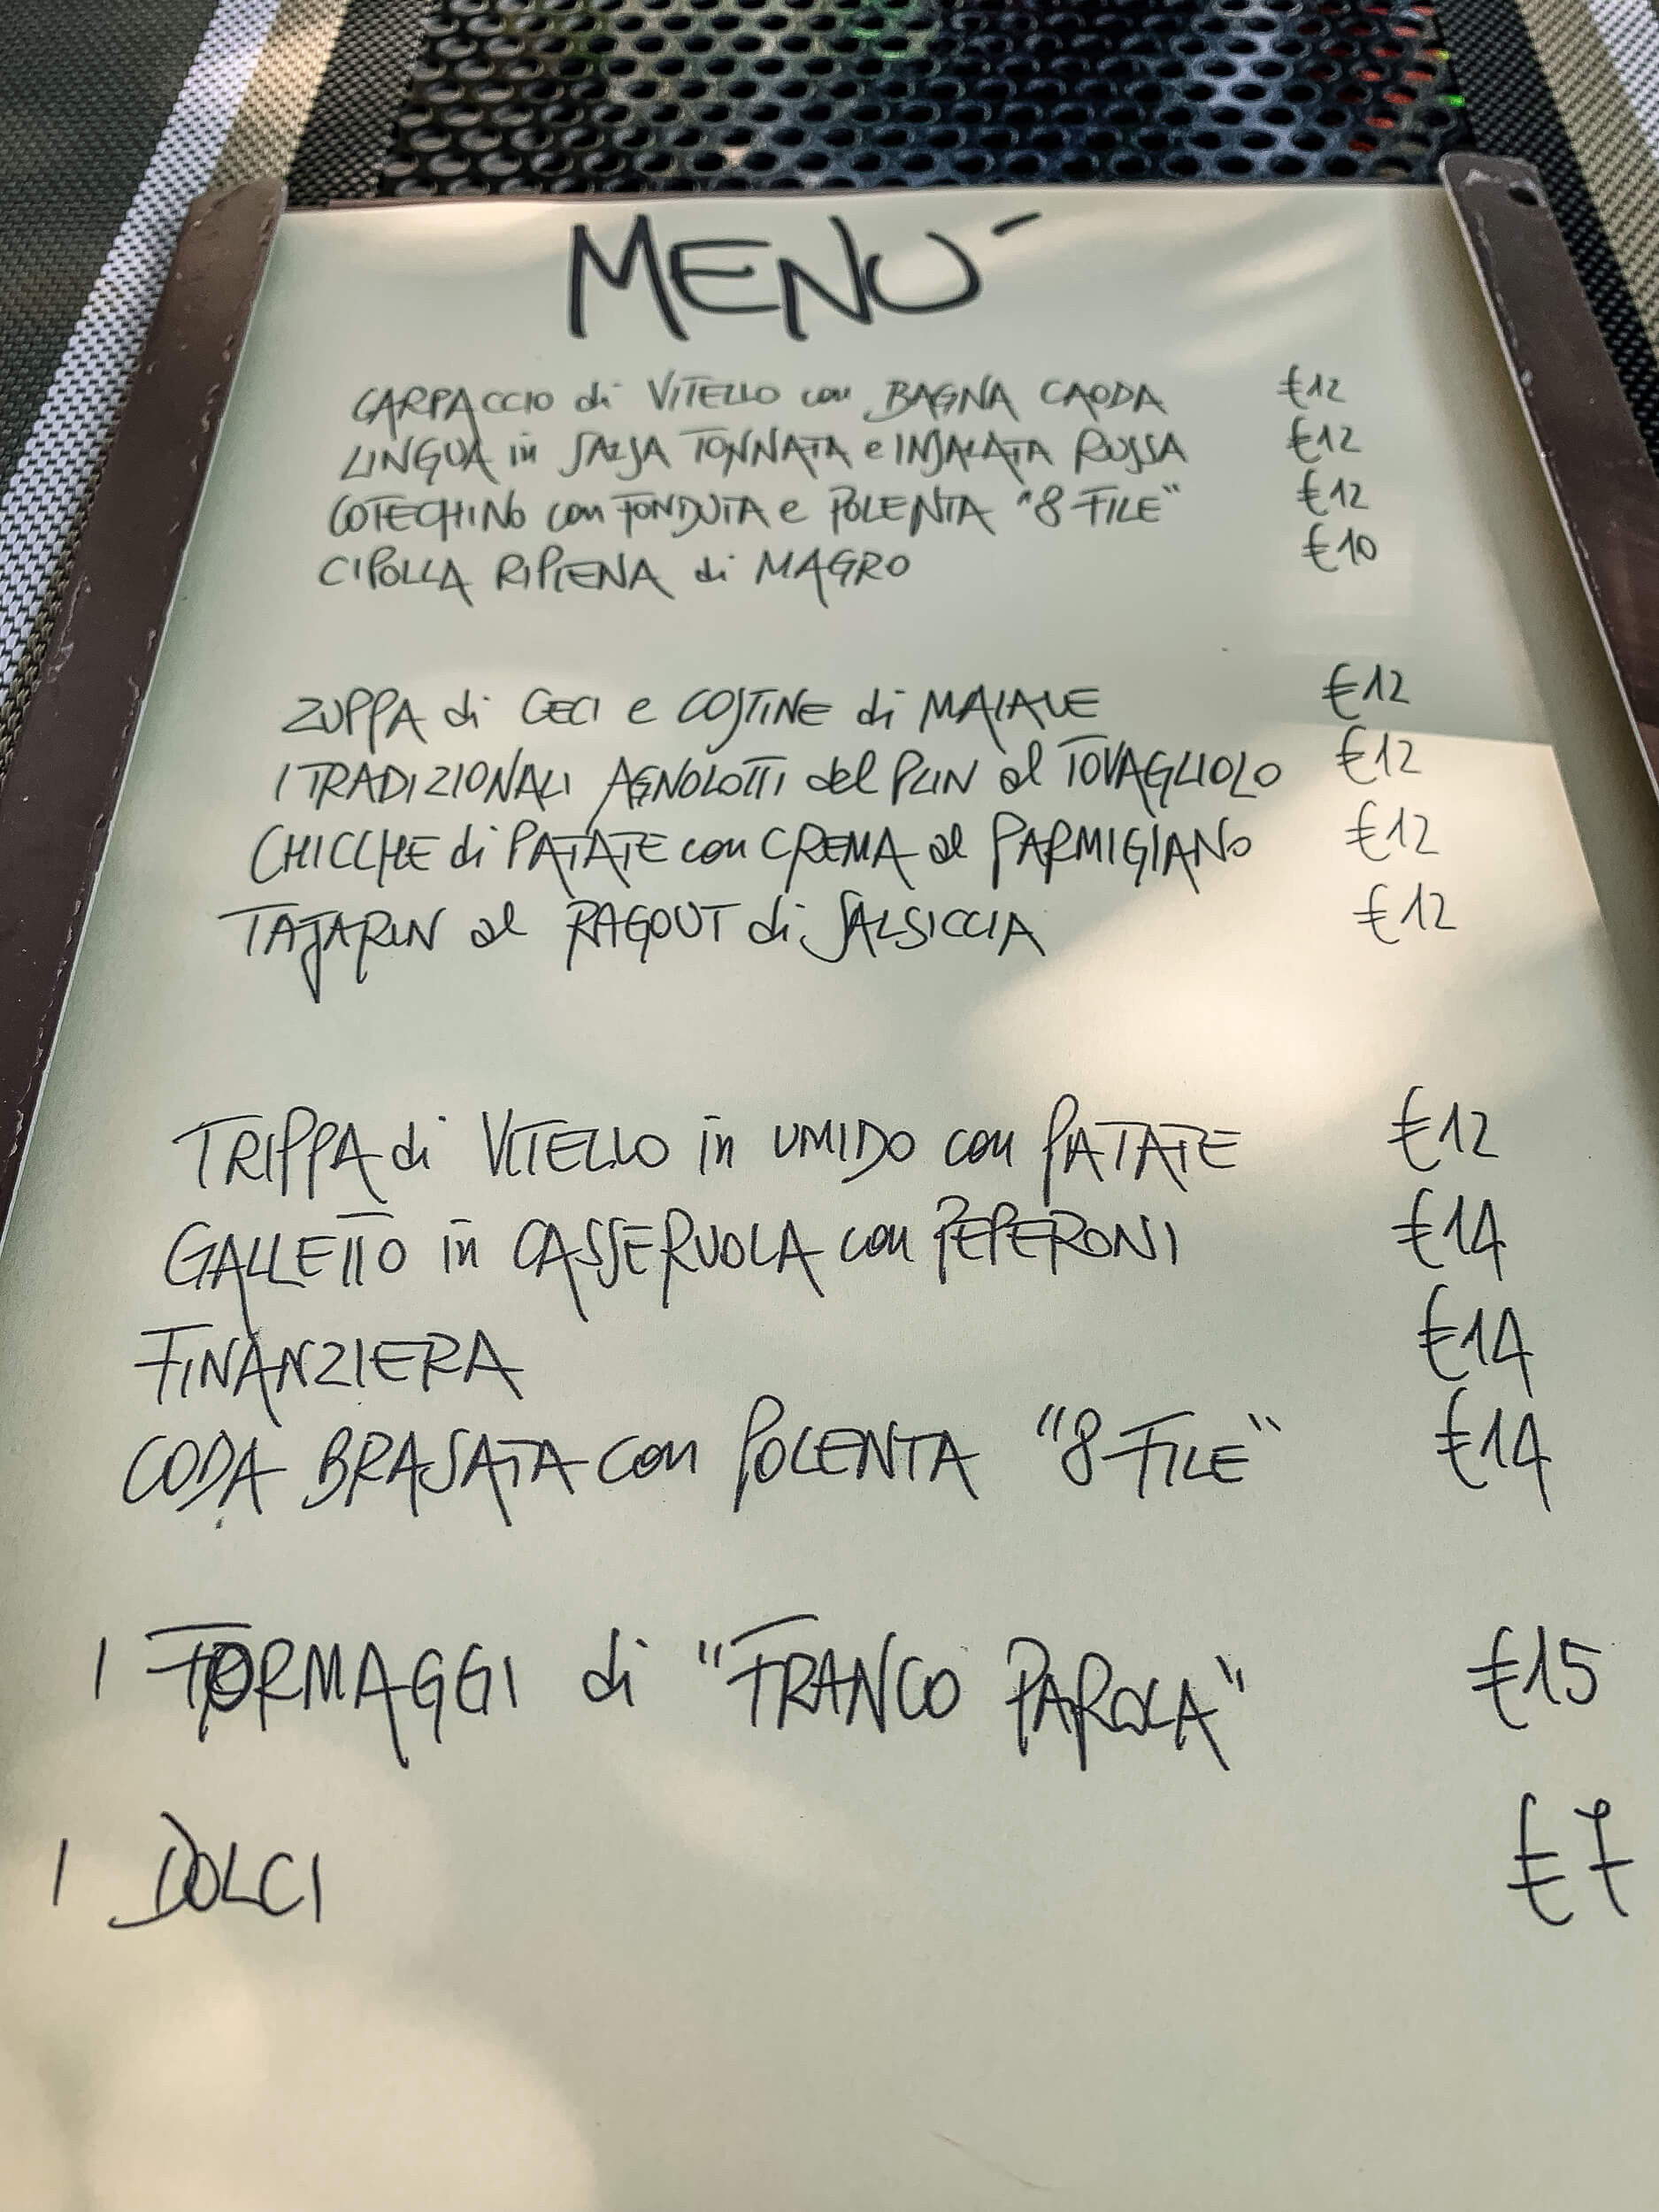 MENÚ
CARPACCIO di VITELLO con BAGNA CAODA €12
LINGUA in SALSA TONNATA e INSALATA RUSSA €12
COTECHINO con FONDUTA e POLENTA "8 FILE" €12
CIPOLLA RIPIENA di MAGRO €10
ZUPPA di CECI e COSTINE di MAIALE €12
I TRADIZIONALI AGNOLOTTI del PLIN al TOVAGLIOLO €12
CHICCHE di PATATE con CREMA al PARMIGIANO €12
TAJARIN al RAGOUT di SALSICCIA €12
TRIPPA di VITELLO in UMIDO con PATATE €12
GALLETTO in CASSERUOLA con PEPERONI €14
FINANZIERA €14
CODA BRASATA con POLENTA "8 FILE" €14
I FORMAGGI di "FRANCO PAROLA" €15
I DOLCI €7